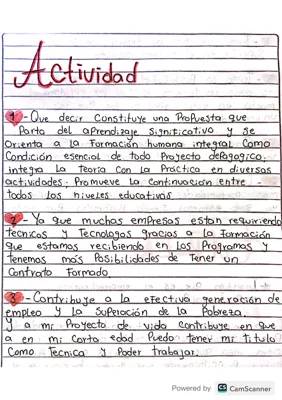 Actividad
1 - Que decir Constituye una Propuesta que
Parta del aprendizaje significativo y se
Orienta a la Formación humana integral Como
Condición esencial de todo Proyecto depagogica.
integra la Teoría con La Práctica en diversas
actividades: Promueve La Continuacion entre
todos los niveles educativos
2 - Ya que muchas empresas estan requiriendo
tecnicos y Tecnologos gracias a la Formación
que estamos recibiendo en Los Programas y
Tenemos más Posibilidades de Tener un
Contrato Formado
3 - Contribuye a la eFectiva generación de
empleo y La Superación de La Pobreza.
y a mi Proyecto de vida Contribuye en que
a en mi Corta edad Puedo tener mi titulo
Como Tecnica y Poder trabajar.
Powered by CS CamScanner